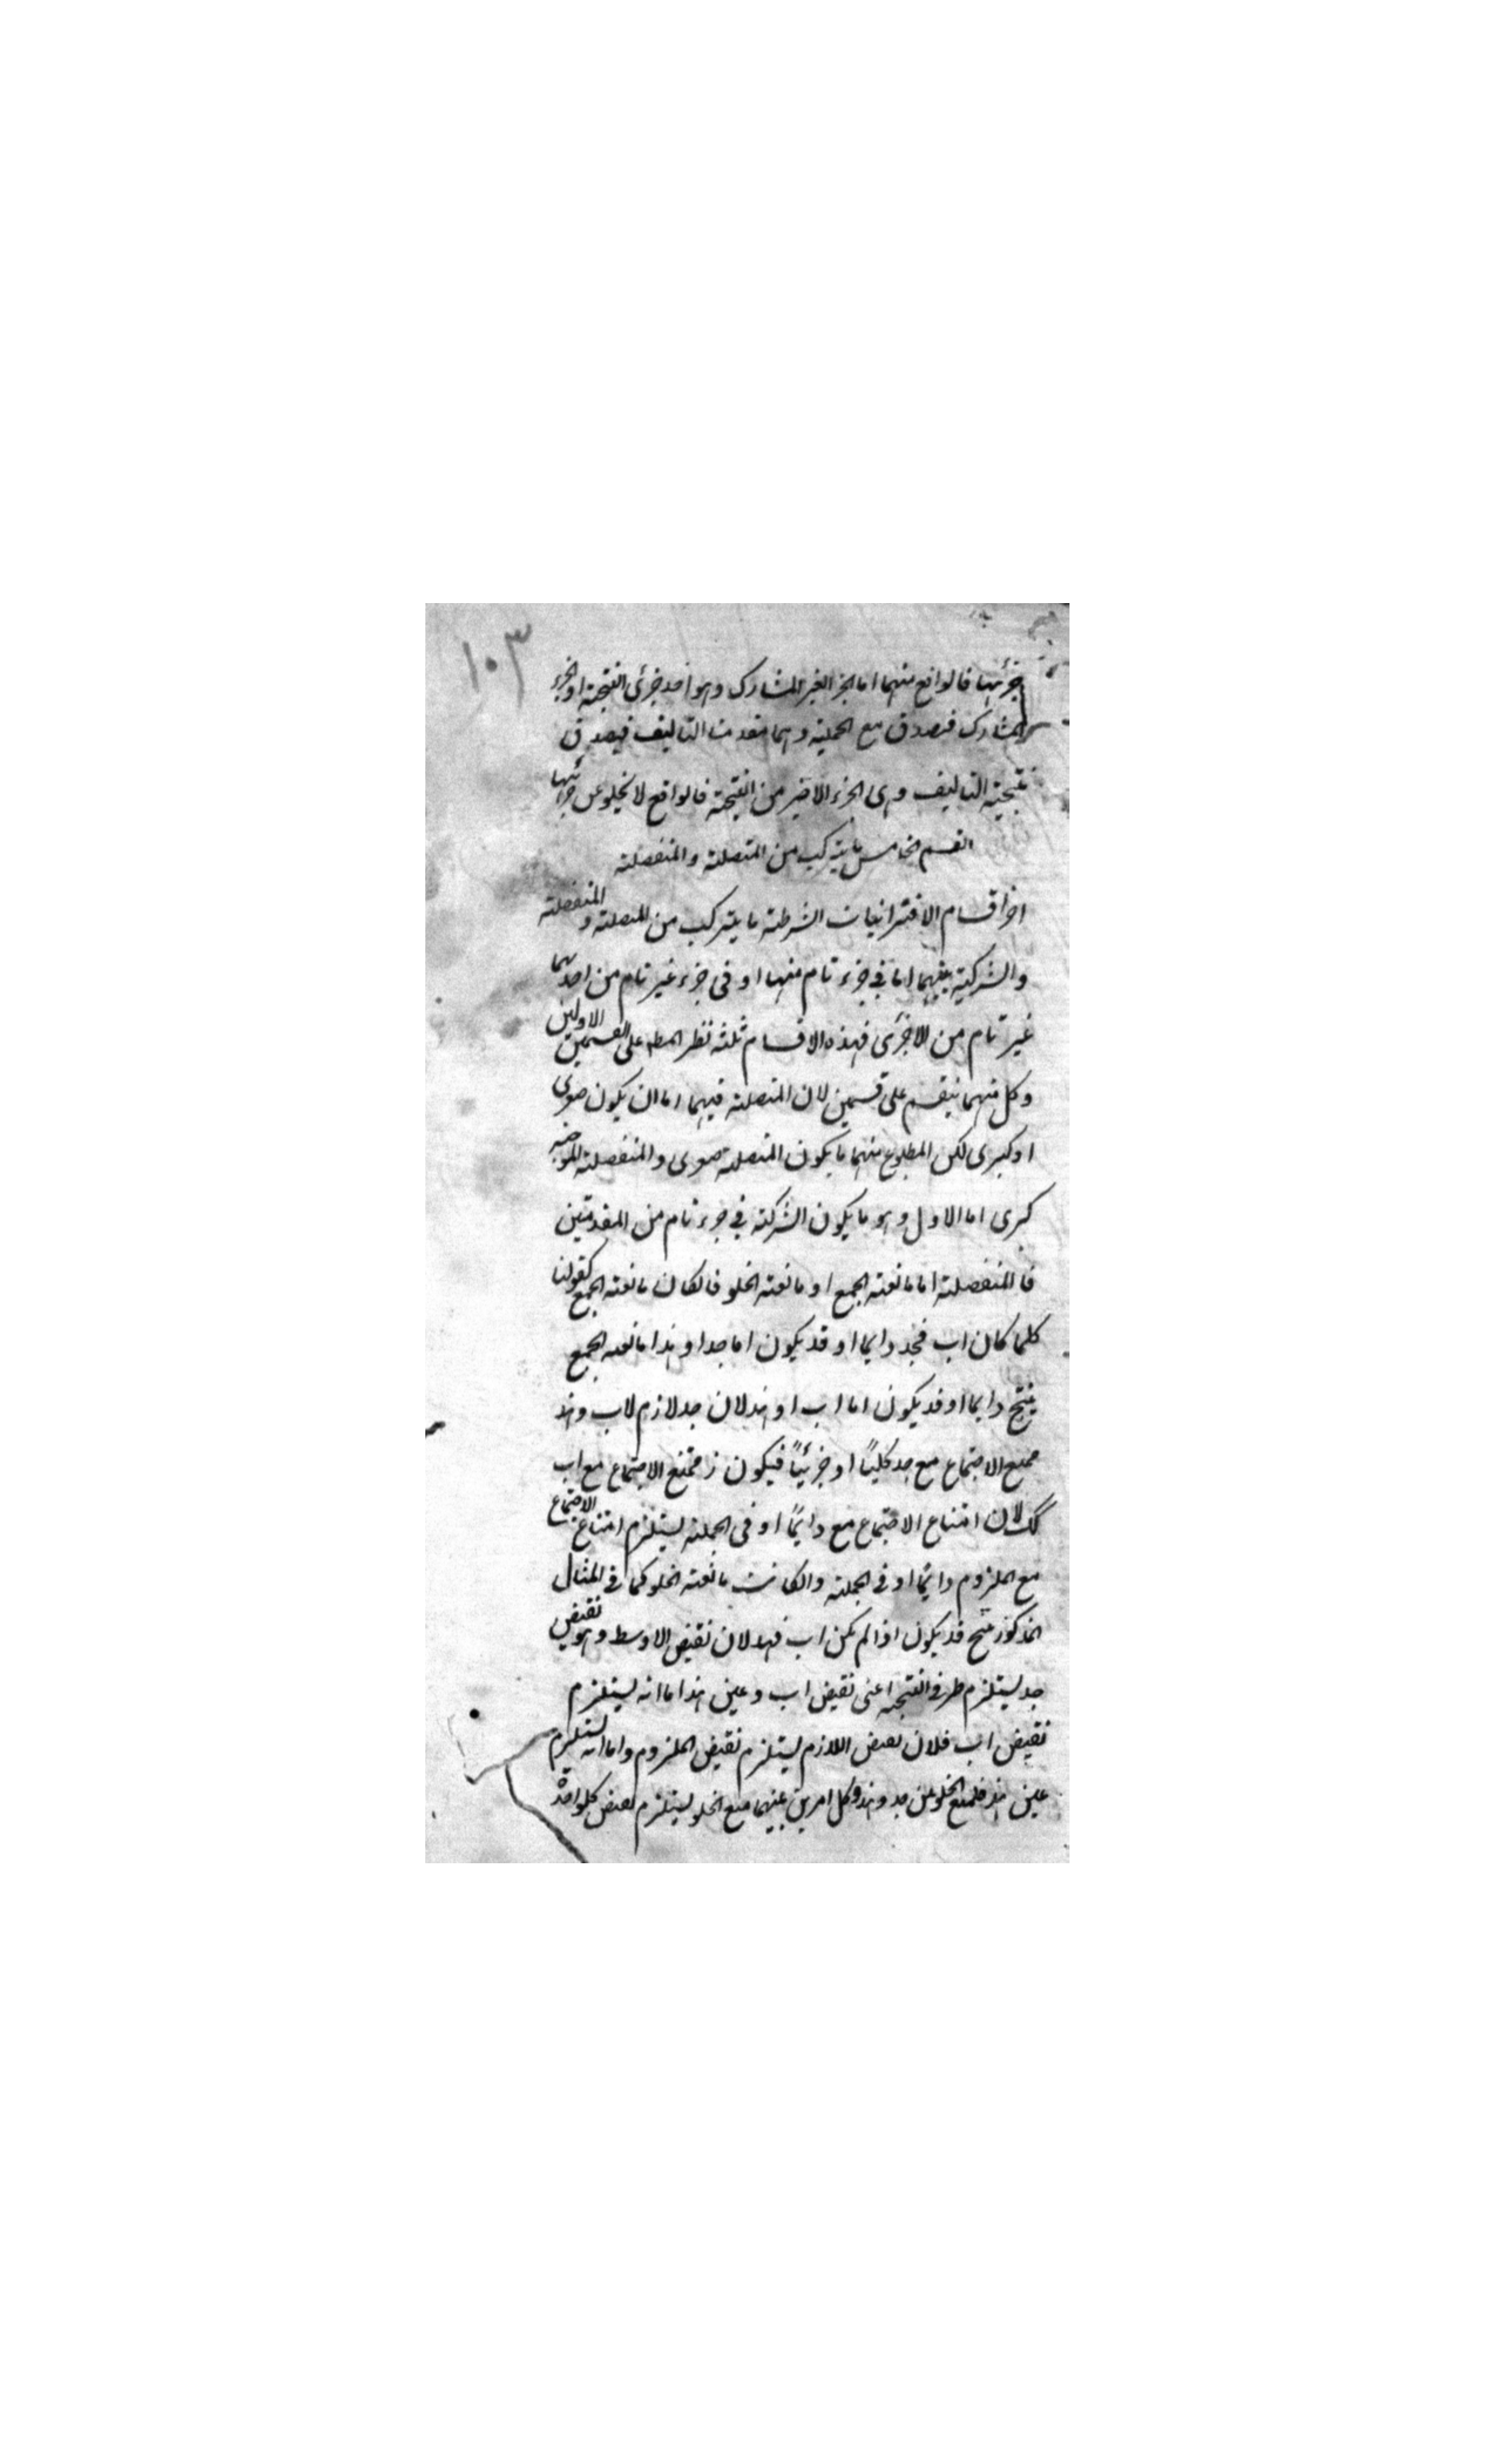 ١٠٣
جزئيها فالواقع منهما اما الجزء الغير المشارك وهو احد جزئى النتيجة او الجزء
المشارك فيصدق مع الحملية وهما مقدمتا التاليف فيصدق
نتيجة التاليف وهى الجزء الاخير من النتيجة فالواقع لا يخلو عن جزئيها
القسم الخامس ما يتركب من المتصلة والمنفصلة
اخر اقسام الاقترانيات الشرطية ما يتركب من المتصلة والمنفصلة
والشركة بينهما اما فى جزء تام منهما او فى جزء غير تام من احديهما
غير تام من الاخرى فهذه الاقسام ثلثة نظر المصـ على القسمين الاولين
وكل منهما ينقسم على قسمين لان المتصلة فيهما اما ان يكون صغرى
او كبرى لكن المطبوع منهما ما يكون المتصلة صغرى والمنفصلة الموجبة
كبرى اما الاول وهو ما يكون الشركة فى جزء تام من المقدمتين
فالمنفصلة اما مانعة الجمع او مانعة الخلو فان كان مانعة الجمع كقولنا
كلما كان اب فجد دايما او قد يكون اما جد او هذا مانعة الجمع
ينتج دايما او قد يكون اما اب او هز لان جد لازم لاب وهز
ممتنع الاجتماع مع جد كليًا او جزئيًا فيكون ز ممتنع الاجتماع مع اب
كك لان امتناع الاجتماع مع دايمًا او فى الجملة يستلزم امتناع الاجتماع
مع الملزوم دايمًا او فى الجملة وان كانت مانعة الخلو كما فى المثال
المذكور ينتج قد يكون اذا لم يكن اب فهز لان نقيض الاوسط وهو نقيض
جد يستلزم طرفى النتيجة اعنى نقيض اب وعين هز اما انه يستلزم
نقيض اب فلان نقيض اللازم يستلزم نقيض الملزوم واما انه يستلزم
عين هز فلمنع الخلو عن جد وهز وكل امرين بينهما منع الخلو يستلزم نقيض كل واحد